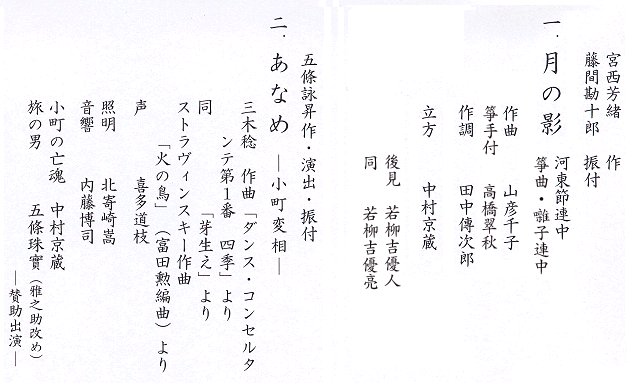 宮西芳緒 作
藤間勘十郎 振付
一.月の影
河東節連中
箏曲・囃子連中
作曲 山彦千子
箏手付 高橋翠秋
作調 田中傳次郎
立方 中村京蔵
後見 若柳吉優人
同 若柳吉優亮
五條詠昇作・演出・振付
二.あなめ ―小町変相―
三木稔 作曲「ダンス・コンセルタ
ンテ第1番 四季」より
同 「芽生え」より
ストラヴィンスキー作曲
「火の鳥」(富田勲編曲)より
声 喜多道枝
照明 北寄崎嵩
音響 内藤博司
小町の亡魂 中村京蔵
旅の男 五條珠實(雅之助改め)
―賛助出演―